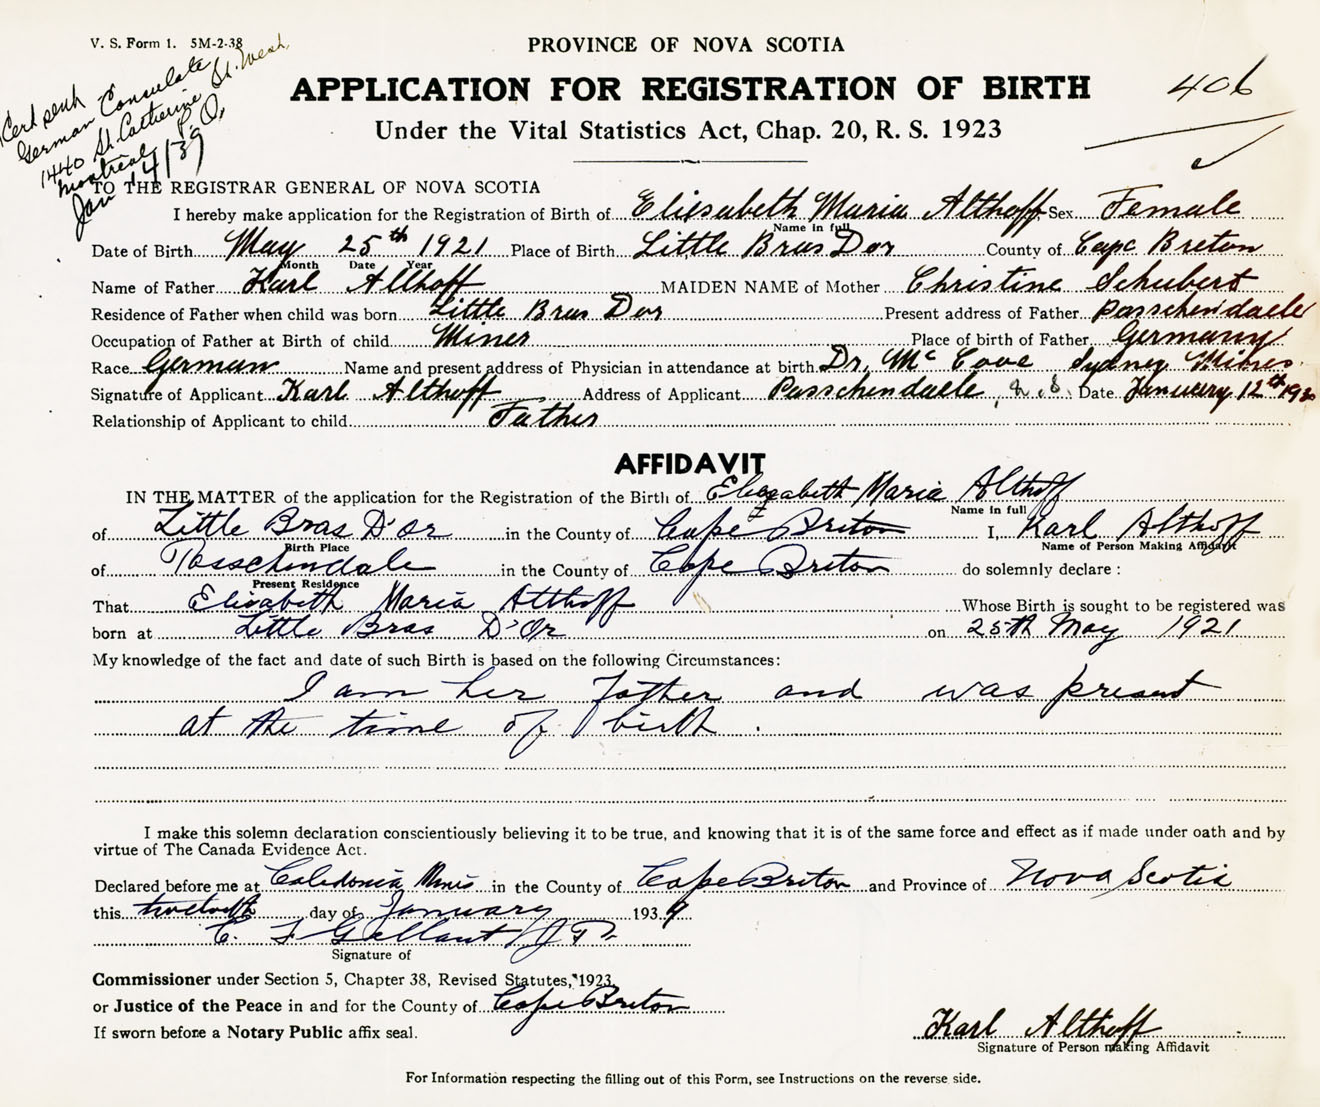 V. S. Form 1. 5M-2-38
Cert sent
German Consulate
1440 St. Catherine St. West,
Montreal P.Q.
Jan 14/39
PROVINCE OF NOVA SCOTIA
APPLICATION FOR REGISTRATION OF BIRTH
406
Under the Vital Statistics Act, Chap. 20, R. S. 1923
TO THE REGISTRAR GENERAL OF NOVA SCOTIA
I hereby make application for the Registration of Birth of Elisabeth Maria Althoff Sex Female
Name in full
Date of Birth May 25th 1921 Place of Birth Little Bras Dor County of Cape Breton
Month Date Year
Name of Father Karl Althoff MAIDEN NAME of Mother Christine Schubert
Residence of Father when child was born Little Bras Dor Present address of Father Passchendaele
Occupation of Father at Birth of child Miner Place of birth of Father Germany
Race German Name and present address of Physician in attendance at birth Dr, Mc Cove Sydney Mines.
Signature of Applicant Karl Althoff Address of Applicant Passchendaele, Date January 12th
Relationship of Applicant to child Father
AFFIDAVIT
IN THE MATTER of the application for the Registration of the Birth of Elizabeth Maria Althoff
Name in full
of Little Bras D'or in the County of Cape Briton I, Karl Althoff
Birth Place Name of Person Making Affidavit
of Passchendale in the County of Cape Briton do solemnly declare :
Present Residence
That Elisabeth Maria Althoff Whose Birth is sought to be registered was
born at Little Bras D'Or on 25th May 1921
My knowledge of the fact and date of such Birth is based on the following Circumstances:
I am her Father and was present
at the time of birth .
I make this solemn declaration conscientiously believing it to be true, and knowing that it is of the same force and effect as if made under oath and by
virtue of The Canada Evidence Act.
Declared before me at Caledonia Mines in the County of Cape Briton and Province of Nova Scotia
this twelveth day of January 1939
C. F Gallant J P.
Signature of
Commissioner under Section 5, Chapter 38, Revised Statutes, 1923,
or Justice of the Peace in and for the County of Cape Briton
If sworn before a Notary Public affix seal.
Karl Althoff
Signature of Person making Affidavit
For Information respecting the filling out of this Form, see Instructions on the reverse side.